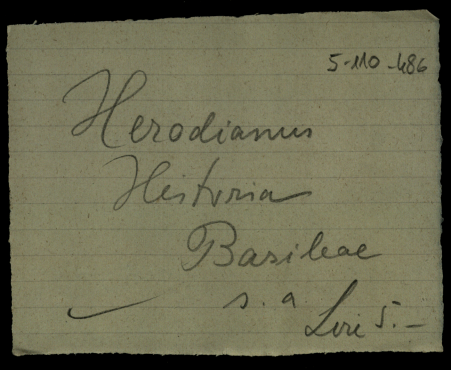 5-110-486
Herodianus
Historia
Basileae
s. a
Lire 5.-